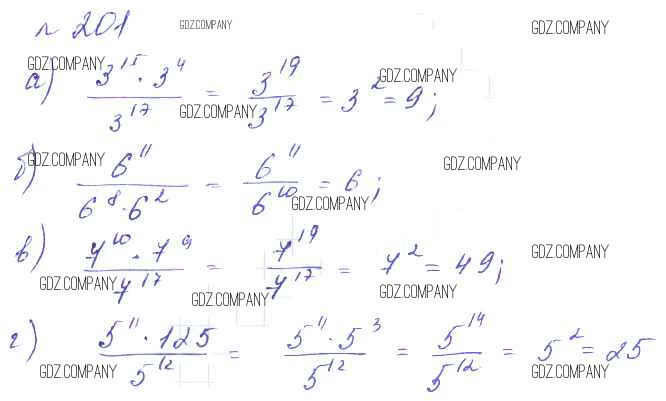 № 201 GDZ.COMPANY GDZ.COMPANY
GDZ.COMPANY GDZ.COMPANY
а) (3^15 · 3^4)/3^17 = 3^19/3^17 = 3^2 = 9;
GDZ.COMPANY
GDZ.COMPANY GDZ.COMPANY
б) 6^11/(6^8 · 6^2) = 6^11/6^10 = 6;
GDZ.COMPANY
GDZ.COMPANY
в) (7^10 · 7^9)/7^17 = 7^19/7^17 = 7^2 = 49;
GDZ.COMPANY GDZ.COMPANY GDZ.COMPANY
г) (5^11 · 125)/5^12 = (5^11 · 5^3)/5^12 = 5^14/5^12 = 5^2 = 25
GDZ.COMPANY GDZ.COMPANY GDZ.COMPANY